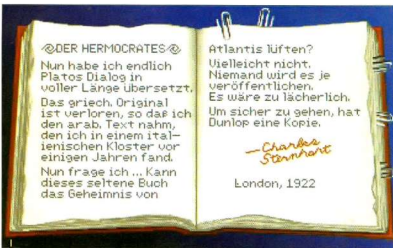 DER HERMOCRATES
Nun habe ich endlich
Platos Dialog in
voller Länge übersetzt.
Das griech. Original
ist verloren, so daß ich
den arab. Text nahm,
den ich in einem ital-
ienischen Kloster vor
einigen Jahren fand.
Nun frage ich ... Kann
dieses seltene Buch
das Geheimnis von
Atlantis lüften?
Vielleicht nicht.
Niemand wird es je
veröffentlichen.
Es wäre zu lächerlich.
Um sicher zu gehen, hat
Dunlop eine Kopie.
—Charles
Sternhart
London, 1922